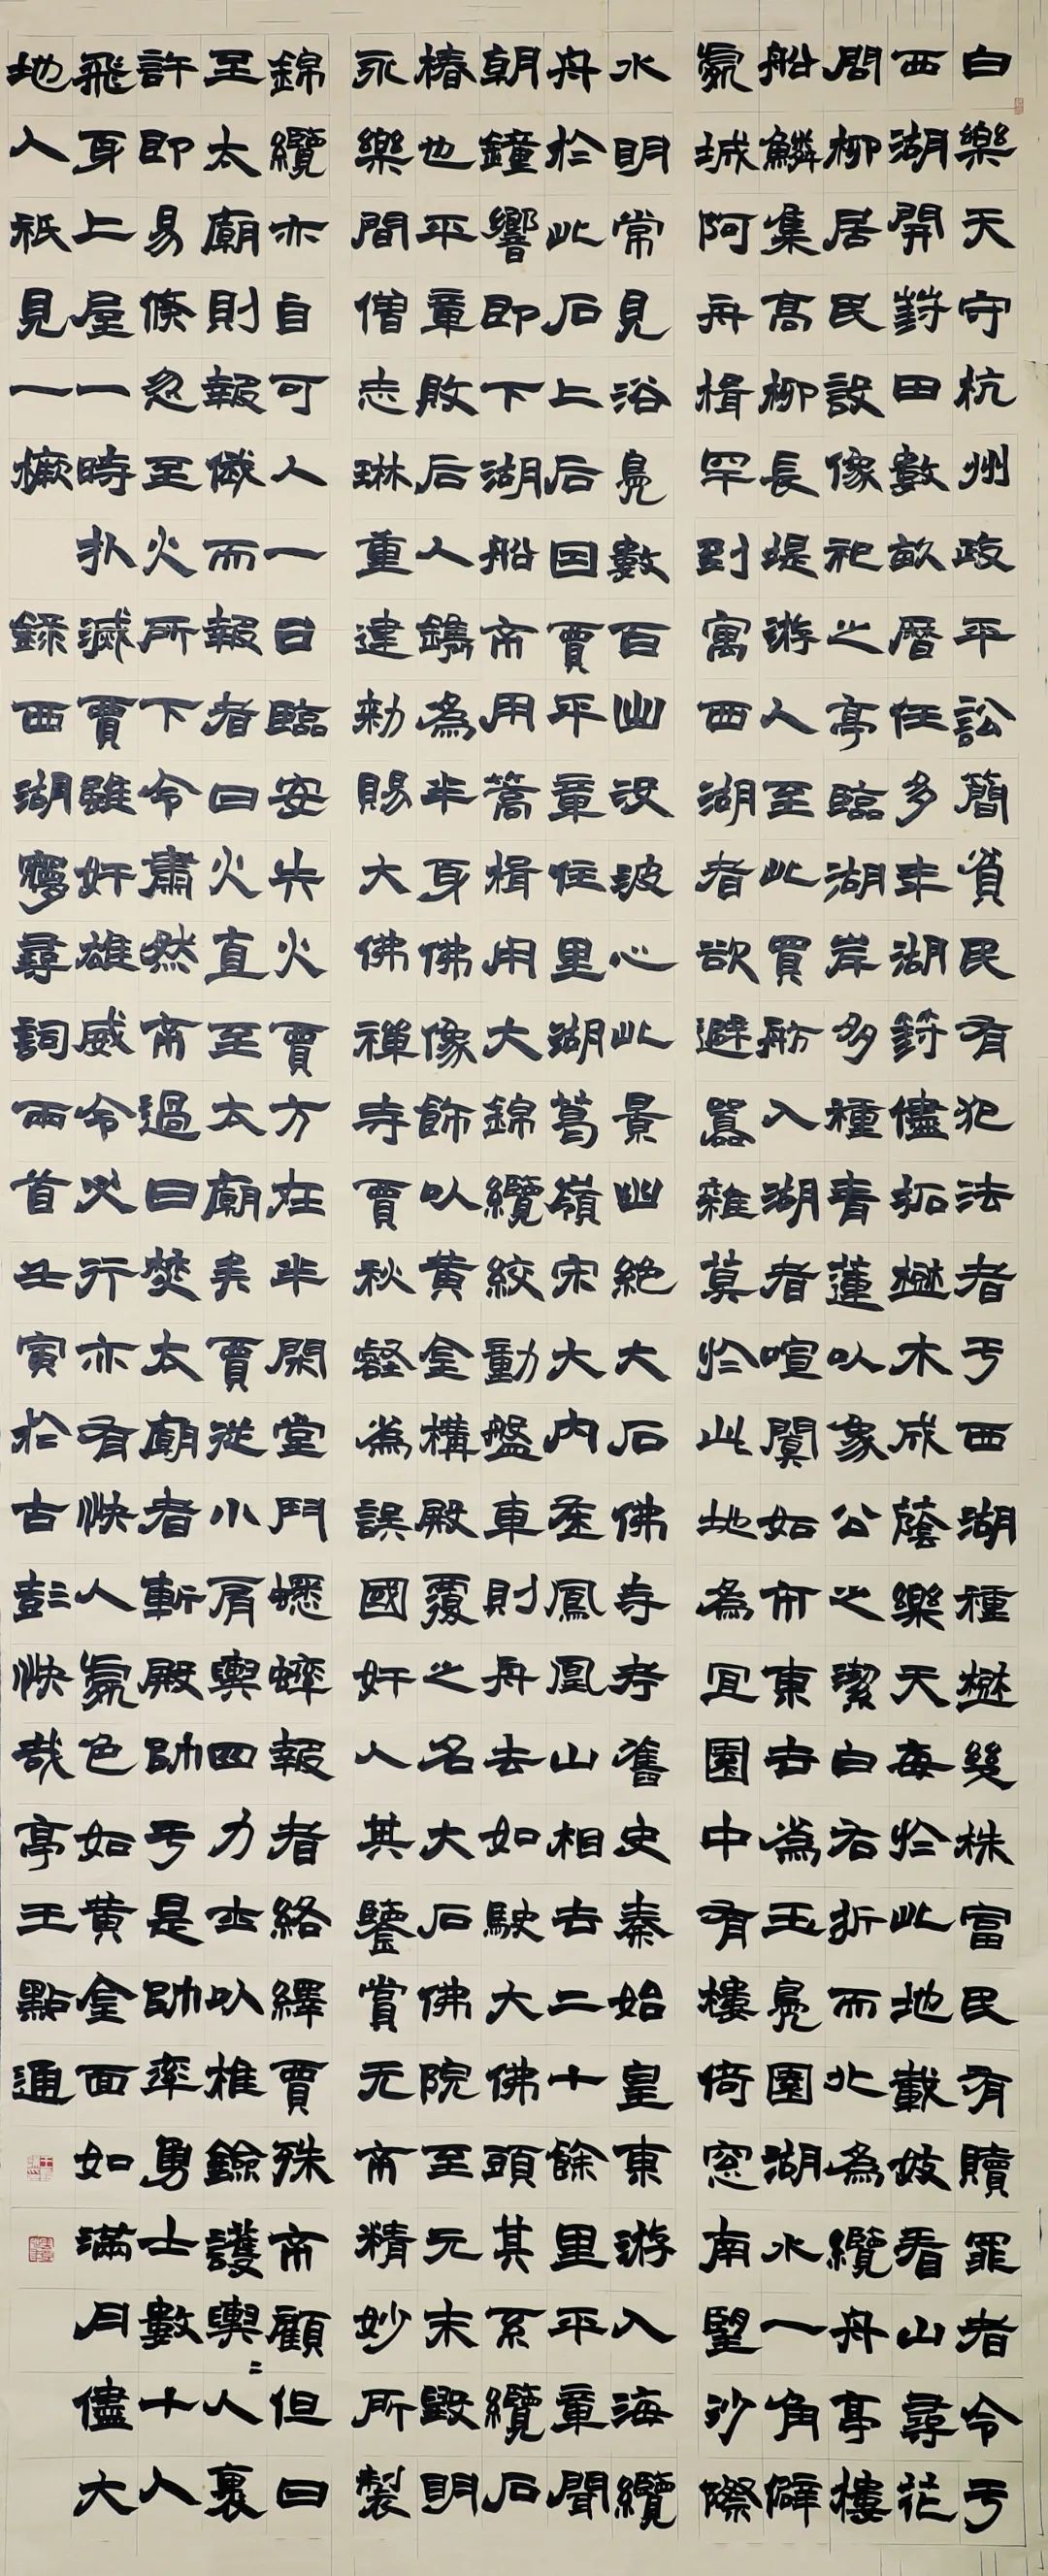 白樂天守杭州政平訟簡貧民有犯法者于西湖種樹幾株富民有贖罪者令于
西湖開葑田數畝曆任多年湖葑儘拓樹木成蔭樂天每於此地載妓看山尋花
問柳居民設像祀之亭臨湖岸多種青蓮以象公之潔白右折而北為纜舟亭樓
船鱗集高柳長堤游人至此買舫入湖者喧闐如市東去為玉鳧園湖水一角僻
處城阿舟楫罕到寓西湖者欲避囂雜莫於此地為宜園中有樓倚窗南望沙際
水明常見浴鳧數百出没波心此景幽絕大石佛寺考舊史秦始皇東游入海纜
舟於此石上后因賈平章住里湖葛嶺宋大內在鳳凰山相去二十餘里平章聞
朝鐘響即下湖船不用篙楫用大錦纜絞動盤車則舟去如駛大佛頭其系纜石
樁也平章敗后人鐫為半身佛像飾以黃金構殿覆之名大石佛院至元末毀明
永樂間僧志琳重建勅賜大佛禪寺賈秋壑為誤國奸人其鑒賞无不精妙所製
錦纜亦自可人一日臨安失火賈方在半閒堂鬥蟋蟀報者絡繹賈殊不顧但曰
至太廟則報俄而報者曰火直至太廟矣賈從小肩輿四力士以椎劍護輿=人裏
許即易倏忽至火所下令肅然不過曰焚太廟者斬殿帥于是帥率勇士數十人
飛身上屋一時扑滅賈雖奸雄威令必行亦有快人處色如黃金面如滿月儘大
地人祇見一橛 錄西湖夢尋詞兩首壬寅於古彭快哉亭王點通